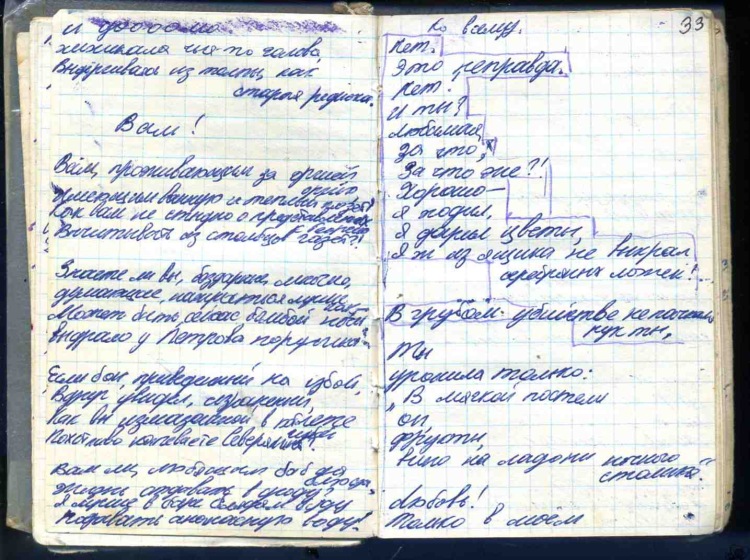 и долго
хихикала чья-то голова,
Выдёргиваясь из толпы, как
старая редиска.
Вам!
Вам, проживающим за оргией
оргию
Имеющим ванную и теплый клозет!
Как вам не стыдно о представленных
к Георгию
Вычитывать из столбцов газет?!
Знаете ли вы, бездарные, многие,
думающие, нажраться лучше как
Может быть сейчас бомбой ноги
выдрало у Петрова поручика?..
Если б он, приведенный на убой,
Вдруг увидел, израненный,
Как вы измазанной в котлете
губой
Похотливо напеваете Северянина!
Вам ли, любящим баб да
блюда,
Жизнь отдавать в угоду?
Я лучше в баре блядям буду
Подавать ананасную воду!
33
ко всему.
Нет.
Это неправда.
Нет!
и ты?
Любимая,
за что,
За что же?!
Хорошо —
я ходил,
я дарил цветы,
Я ж из ящика не выкрал
серебряных ложек!...
В грубом убийстве не пачкала
рук ты,
Ты
уронила только:
"В мягкой постели
он,
фрукты,
вино на ладони ночного
столика."
Любовь!
Только в моём